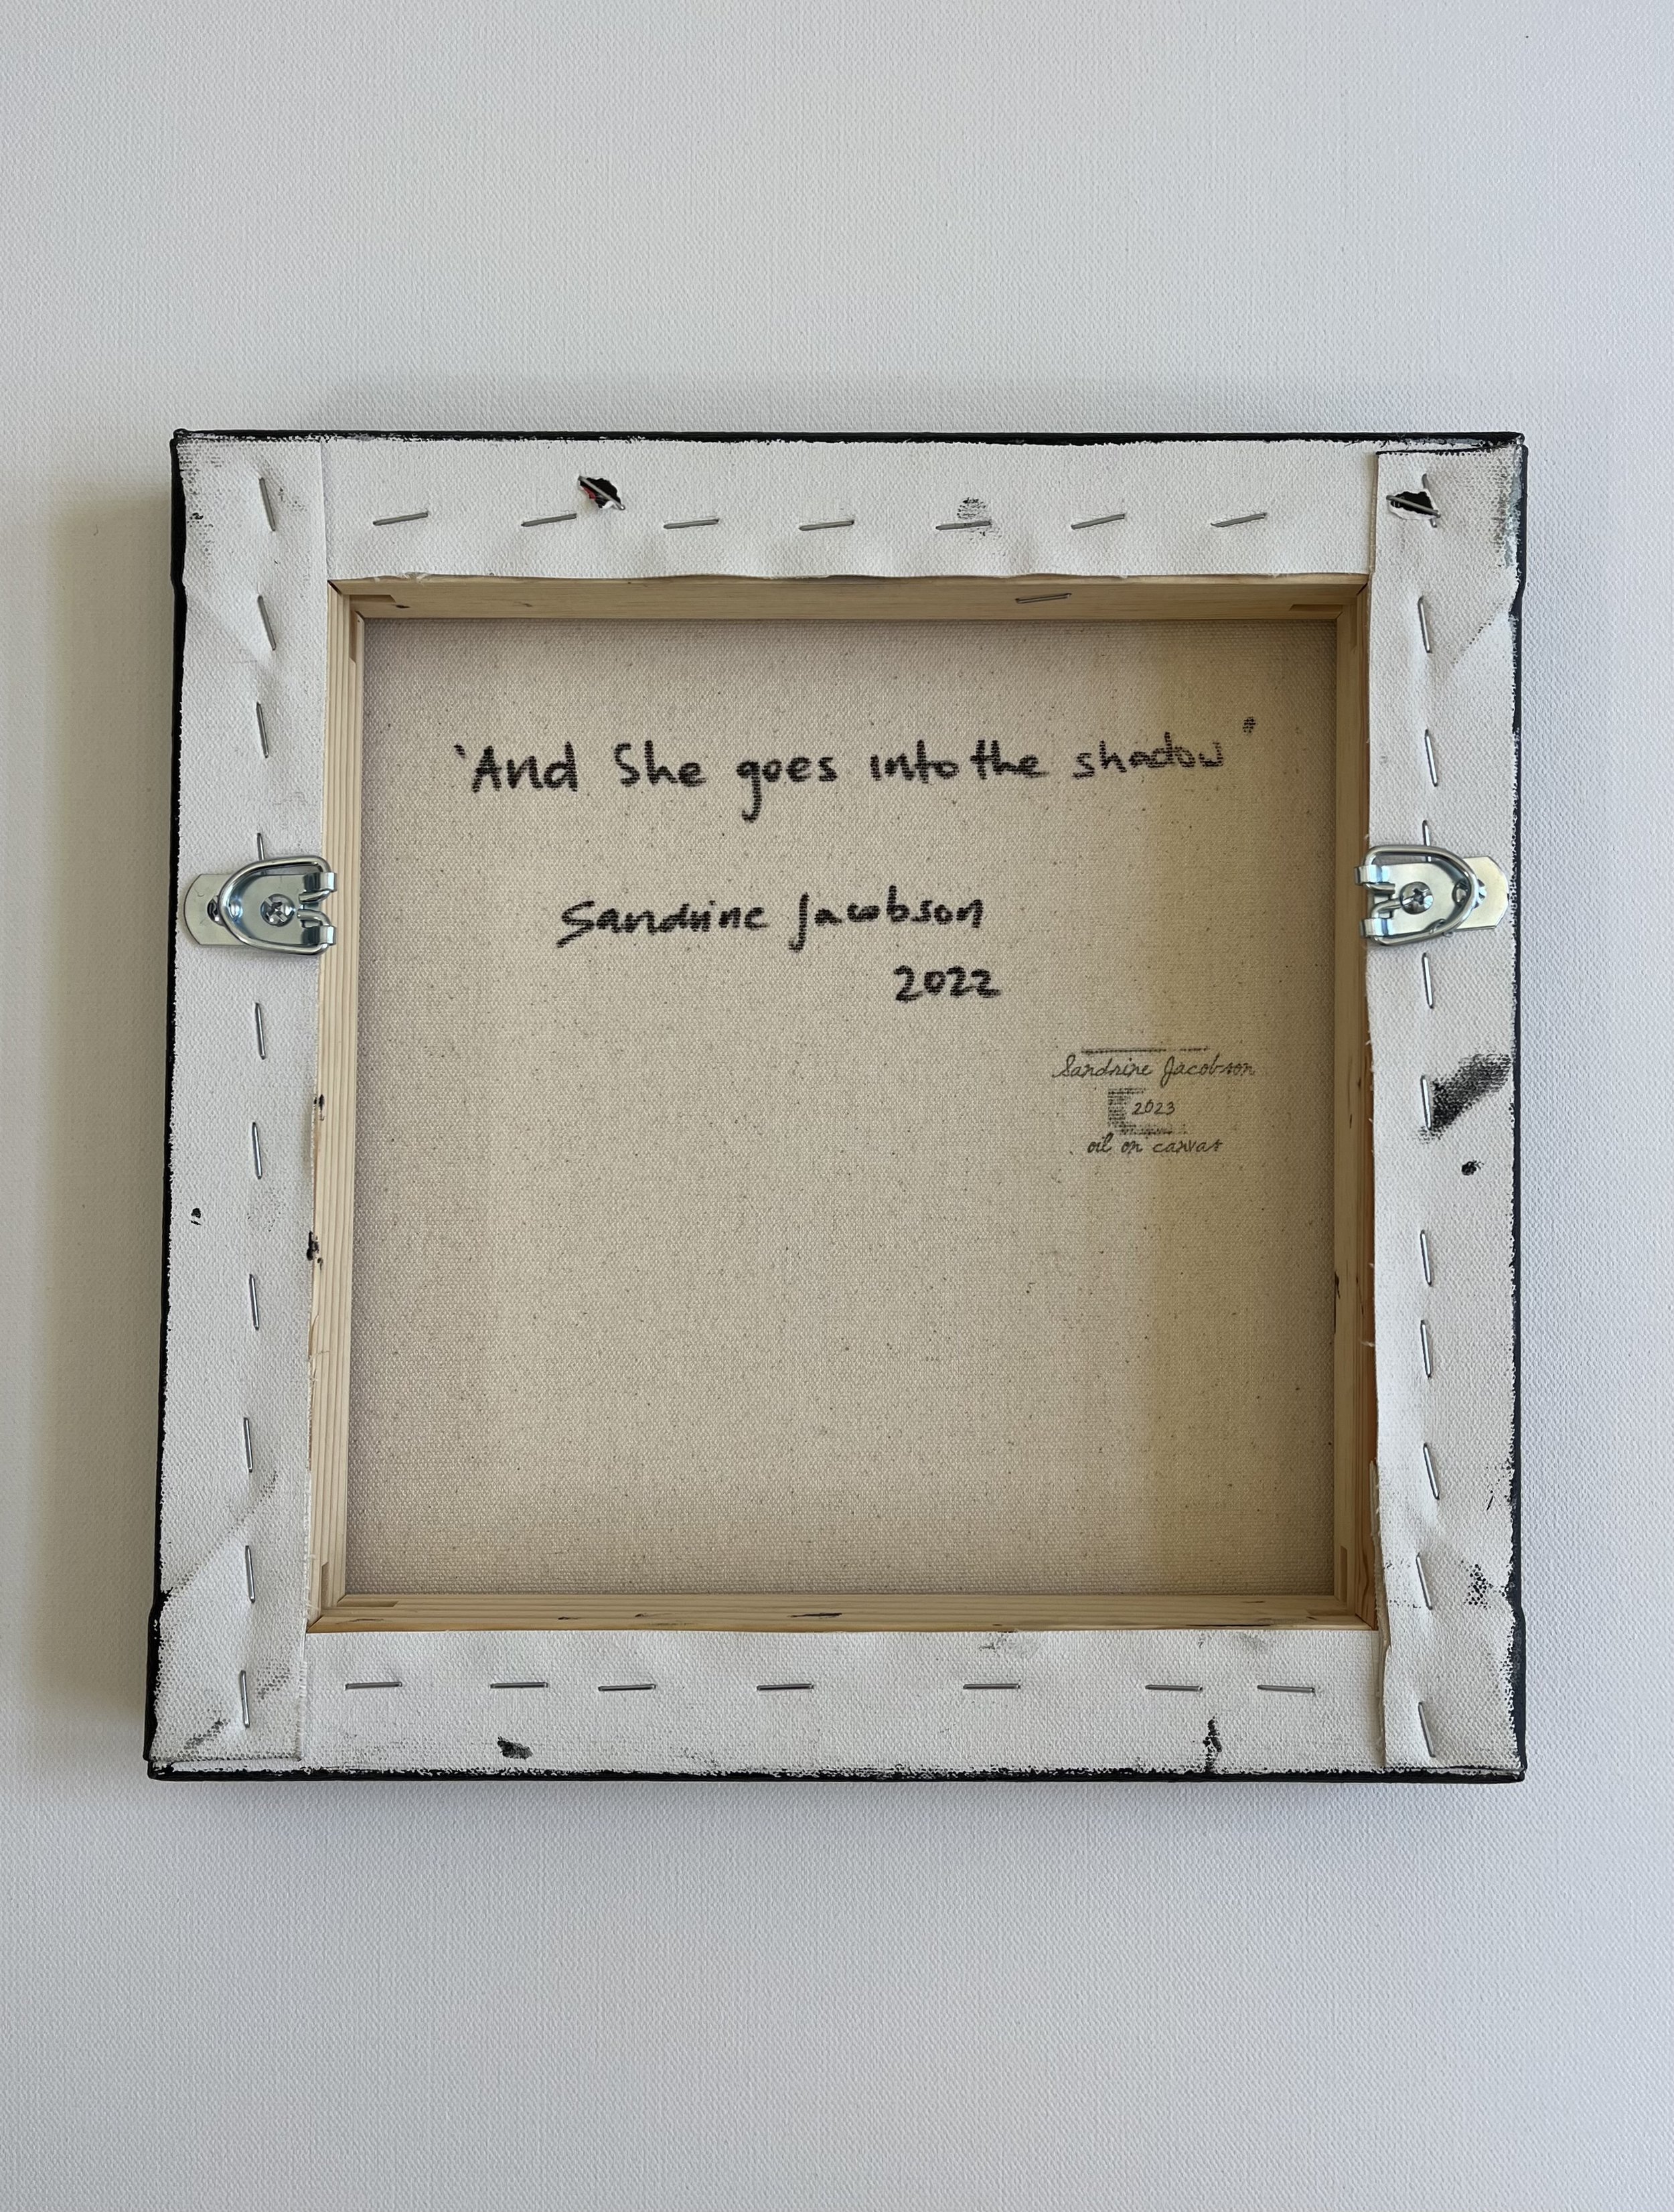 'And She goes into the shadow"
Sandrine Jacobson
2022
Sandrine Jacobson
2023
oil on canvas